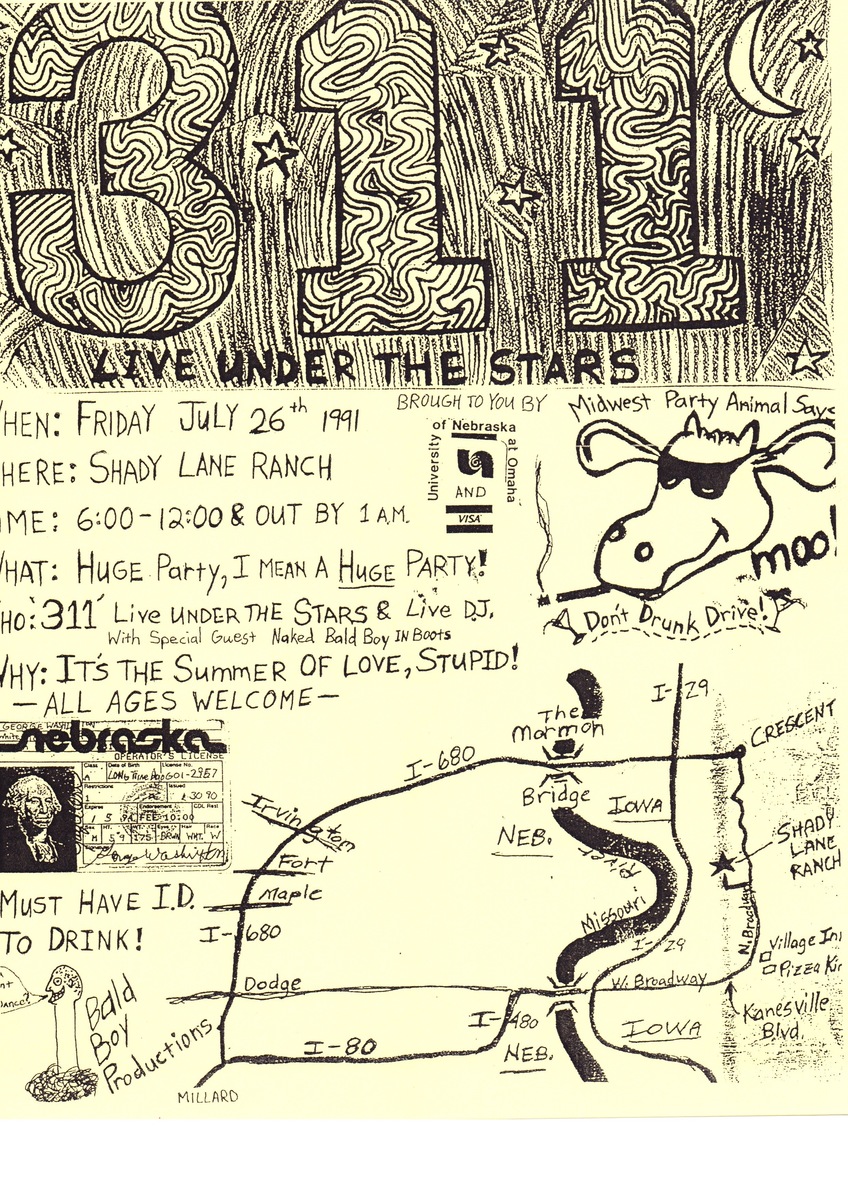 311
LIVE UNDER THE STARS
HEN: FRIDAY JULY 26th 1991
HERE: SHADY LANE RANCH
IME: 6:00-12:00 & OUT BY 1 A.M.
HAT: HUGE Party, I MEAN A HUGE PARTY!
HO: 311 Live UNDER THE STARS & Live D.J.
With Special Guest Naked Bald Boy IN Boots
WHY: IT'S THE Summer OF LOVE, STUPID!
— ALL AGES WELCOME —
BROUGH TO YOU BY
University of Nebraska at Omaha
AND
VISA
Midwest Party Animal Says
moo!
Don't Drunk Drive!
GEORGE WASHI
nebraska
OPERATOR'S LICENSE
Class
Date of Birth
License No.
A
LONG Time Ago
G01-2957
Restrictions
Issued
30 90
Expires
Endorsement
CDL Rest
1 5 94
FEE 10:00
Sex
HT.
WT.
Eyes
Hair
Race
M
5 9
175
BRWN
WHT.
W
George Washington
MUST HAVE I.D.
TO DRINK!
Bald
Boy
Productions
The
Mormon
Bridge
I-29
I-680
CRESCENT
IOWA
NEB.
Irvington
Fort
Maple
I-680
SHADY
LANE
RANCH
Missouri River
N. Broadway
I-29
Village In
Pizza Ki
Dodge
W. Broadway
Kanesville
Blvd.
I-480
IOWA
I-80
NEB.
MILLARD